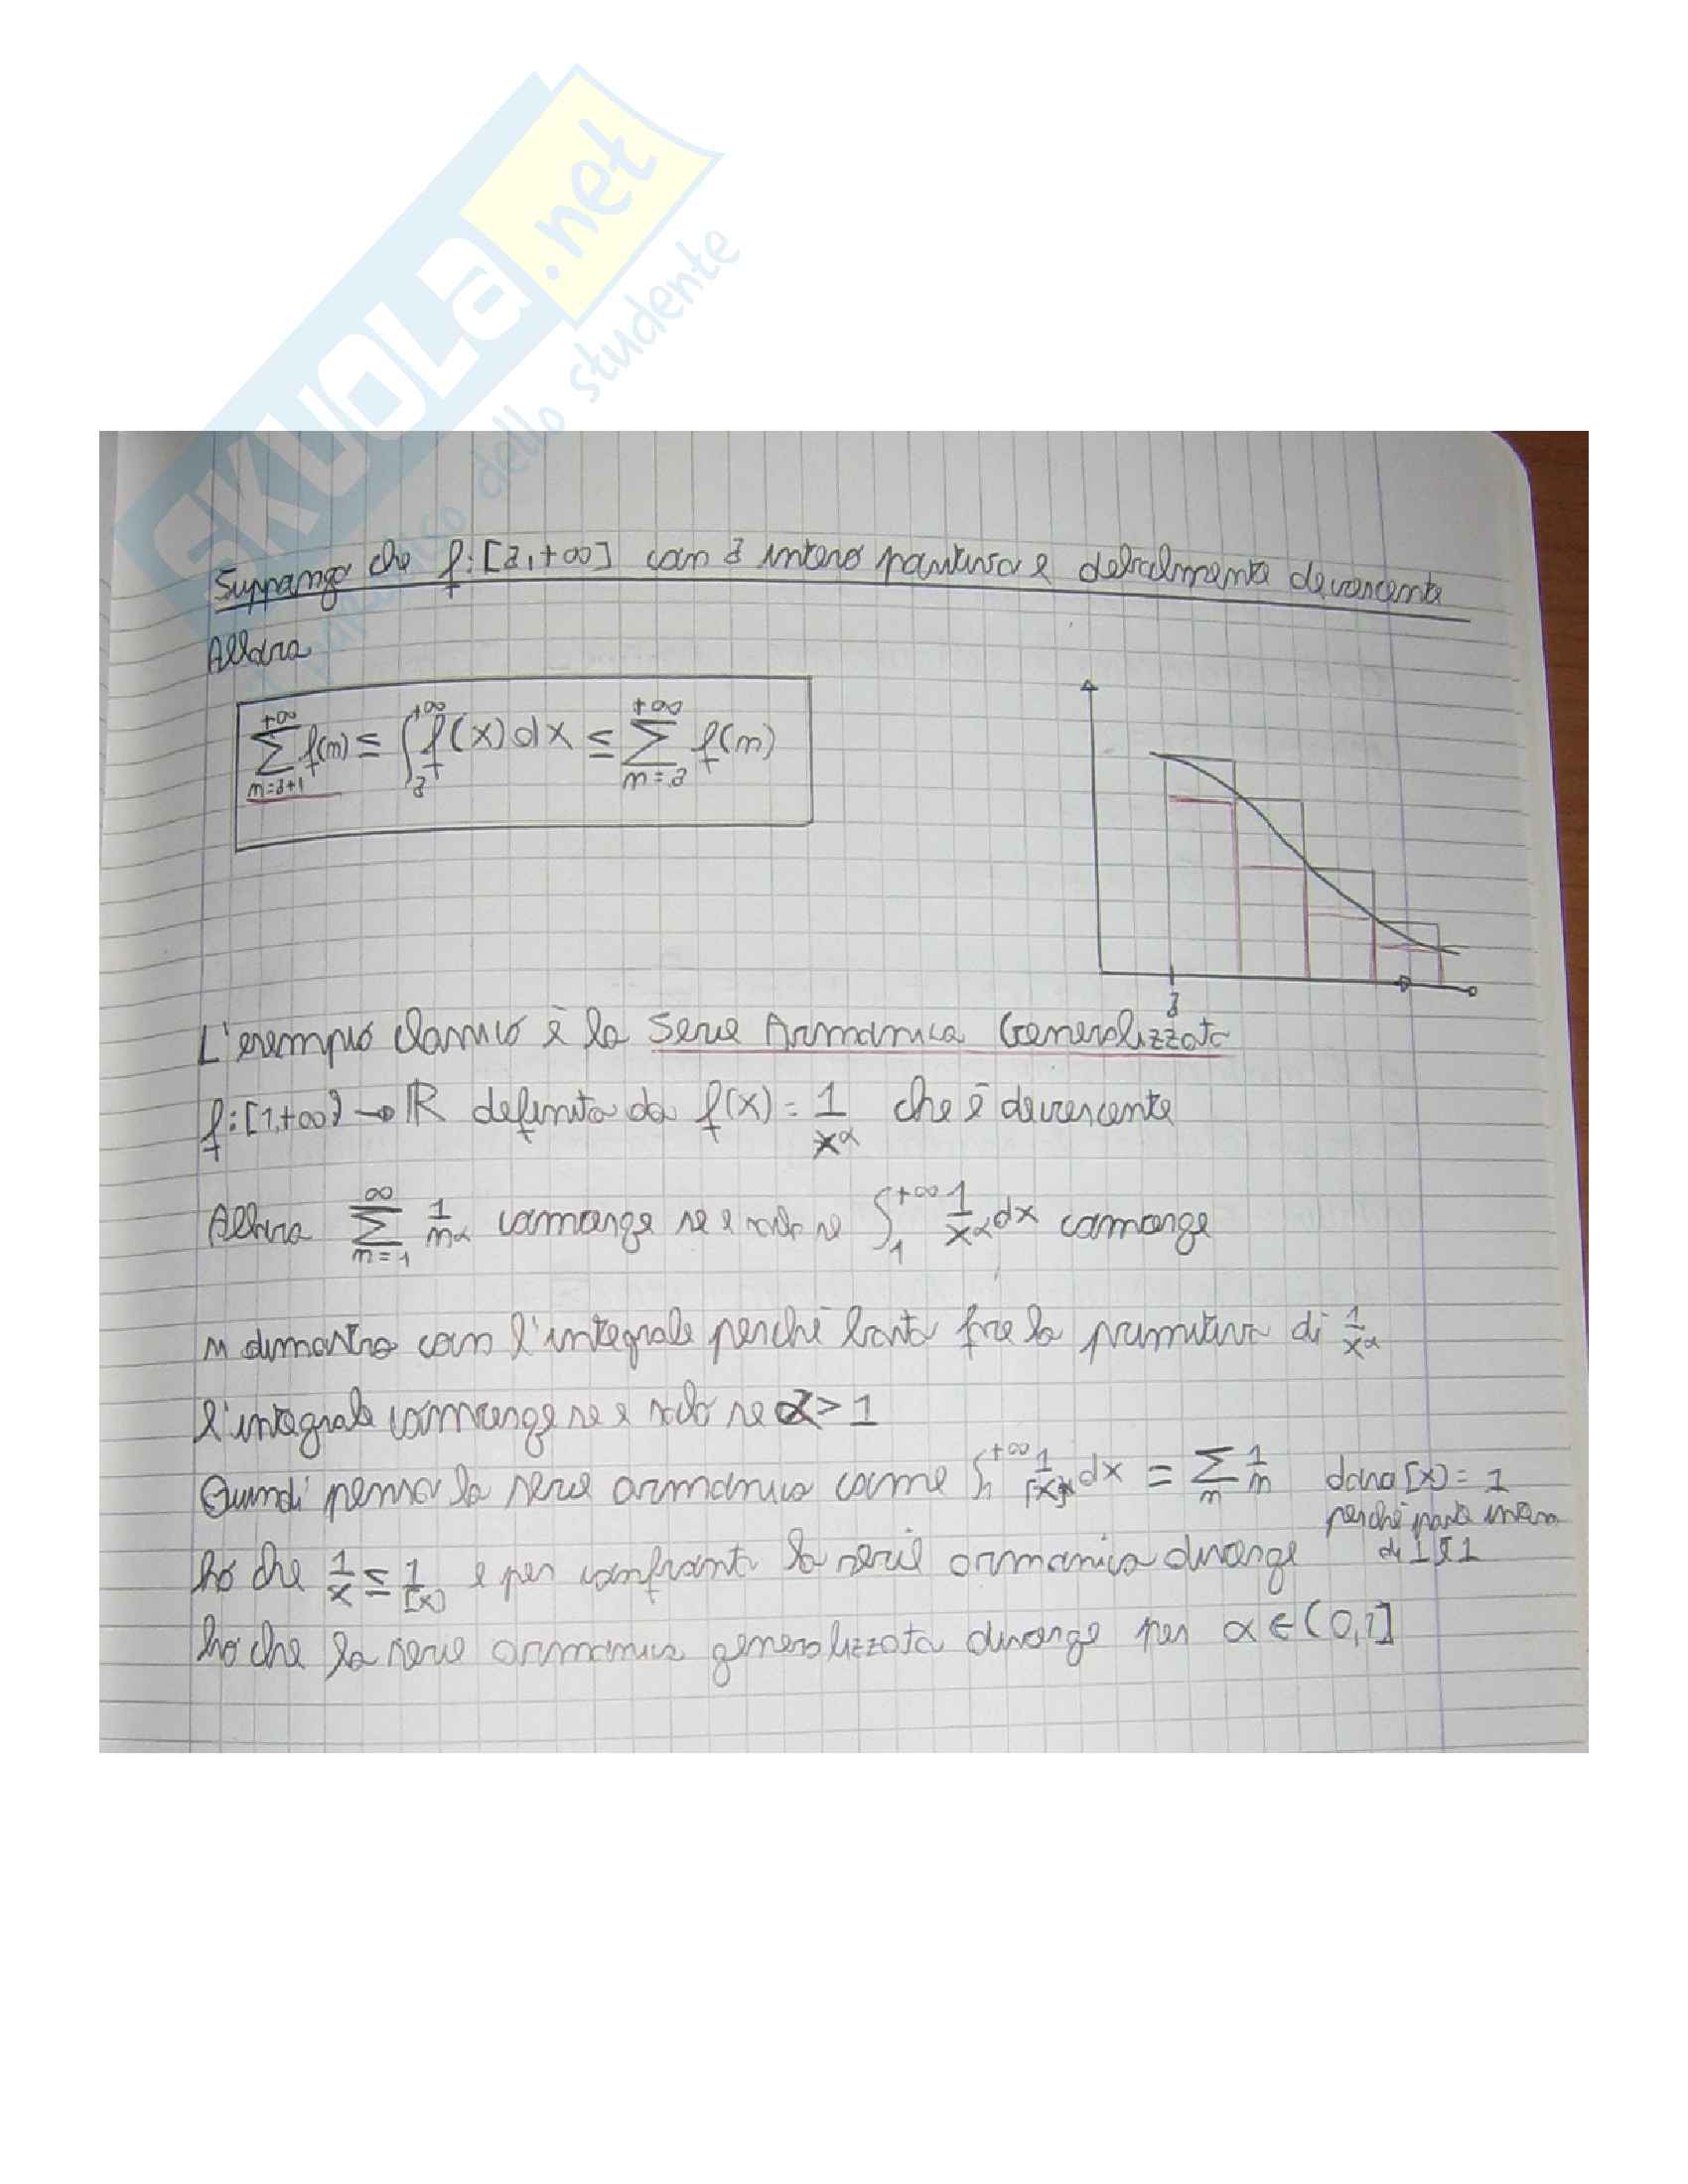 SKUOLa.net
dello studente
Suppongo che f: [a, +∞] con a intero positiva e debolmente decrescente
Allora
+∞ ∑ n=a+1 f(n) ≤ ∫ₐ^{+∞} f(x) dx ≤ +∞ ∑ n=a f(n)
a
L'esempio classico è la Serie Armonica Generalizzata
f: [1, +∞) → ℝ definita da f(x) = 1/x^α che è decrescente
Allora ∞ ∑ n=1 1/n^α converge se e solo se ∫₁^{+∞} 1/x^α dx converge
si dimostra con l'integrale perché basta fare la primitiva di 1/x^α
l'integrale converge se e solo se α > 1
Quindi penso la serie armonica come ∫₁^{+∞} 1/[x] dx = ∑ n 1/n dove [x] = 1
perché parte intera
di 1 è 1
ho che 1/x ≤ 1/[x] e per confronto la serie armonica diverge
ho che la serie armonica generalizzata diverge per α ∈ (0,1]